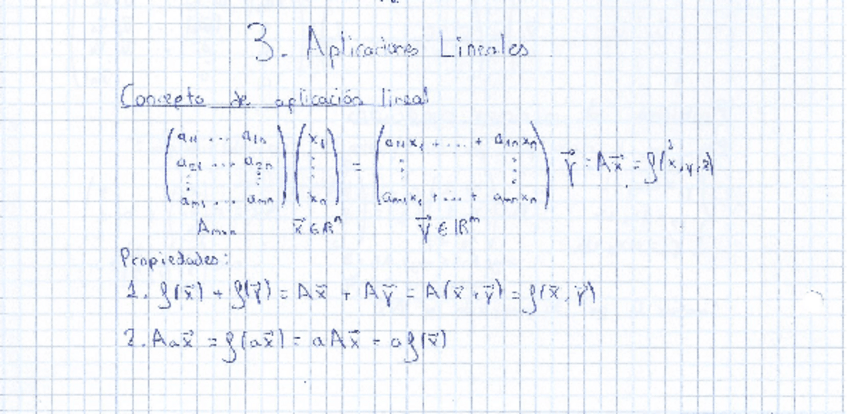 3. Aplicaciones Lineales
Concepto de aplicación lineal
a₁₁ ... a₁ₙ x₁ a₁₁x₁ + ... + a₁ₙxₙ
a₂₁ ... a₂ₙ ⋮ = ⋮ ⋮ y⃗ = Ax⃗ = f(x, y, z)
⋮ ⋮
aₘ₁ ... aₘₙ xₙ aₘ₁x₁ + ... + aₘₙxₙ
Aₘₓₙ x⃗ ∈ ℝⁿ y⃗ ∈ ℝᵐ
Propiedades:
1. f(x⃗) + f(y⃗) = Ax⃗ + Ay⃗ = A(x⃗ + y⃗) = f(x⃗, y⃗)
2. Aax⃗ = f(ax⃗) = aAx⃗ = af(x⃗)